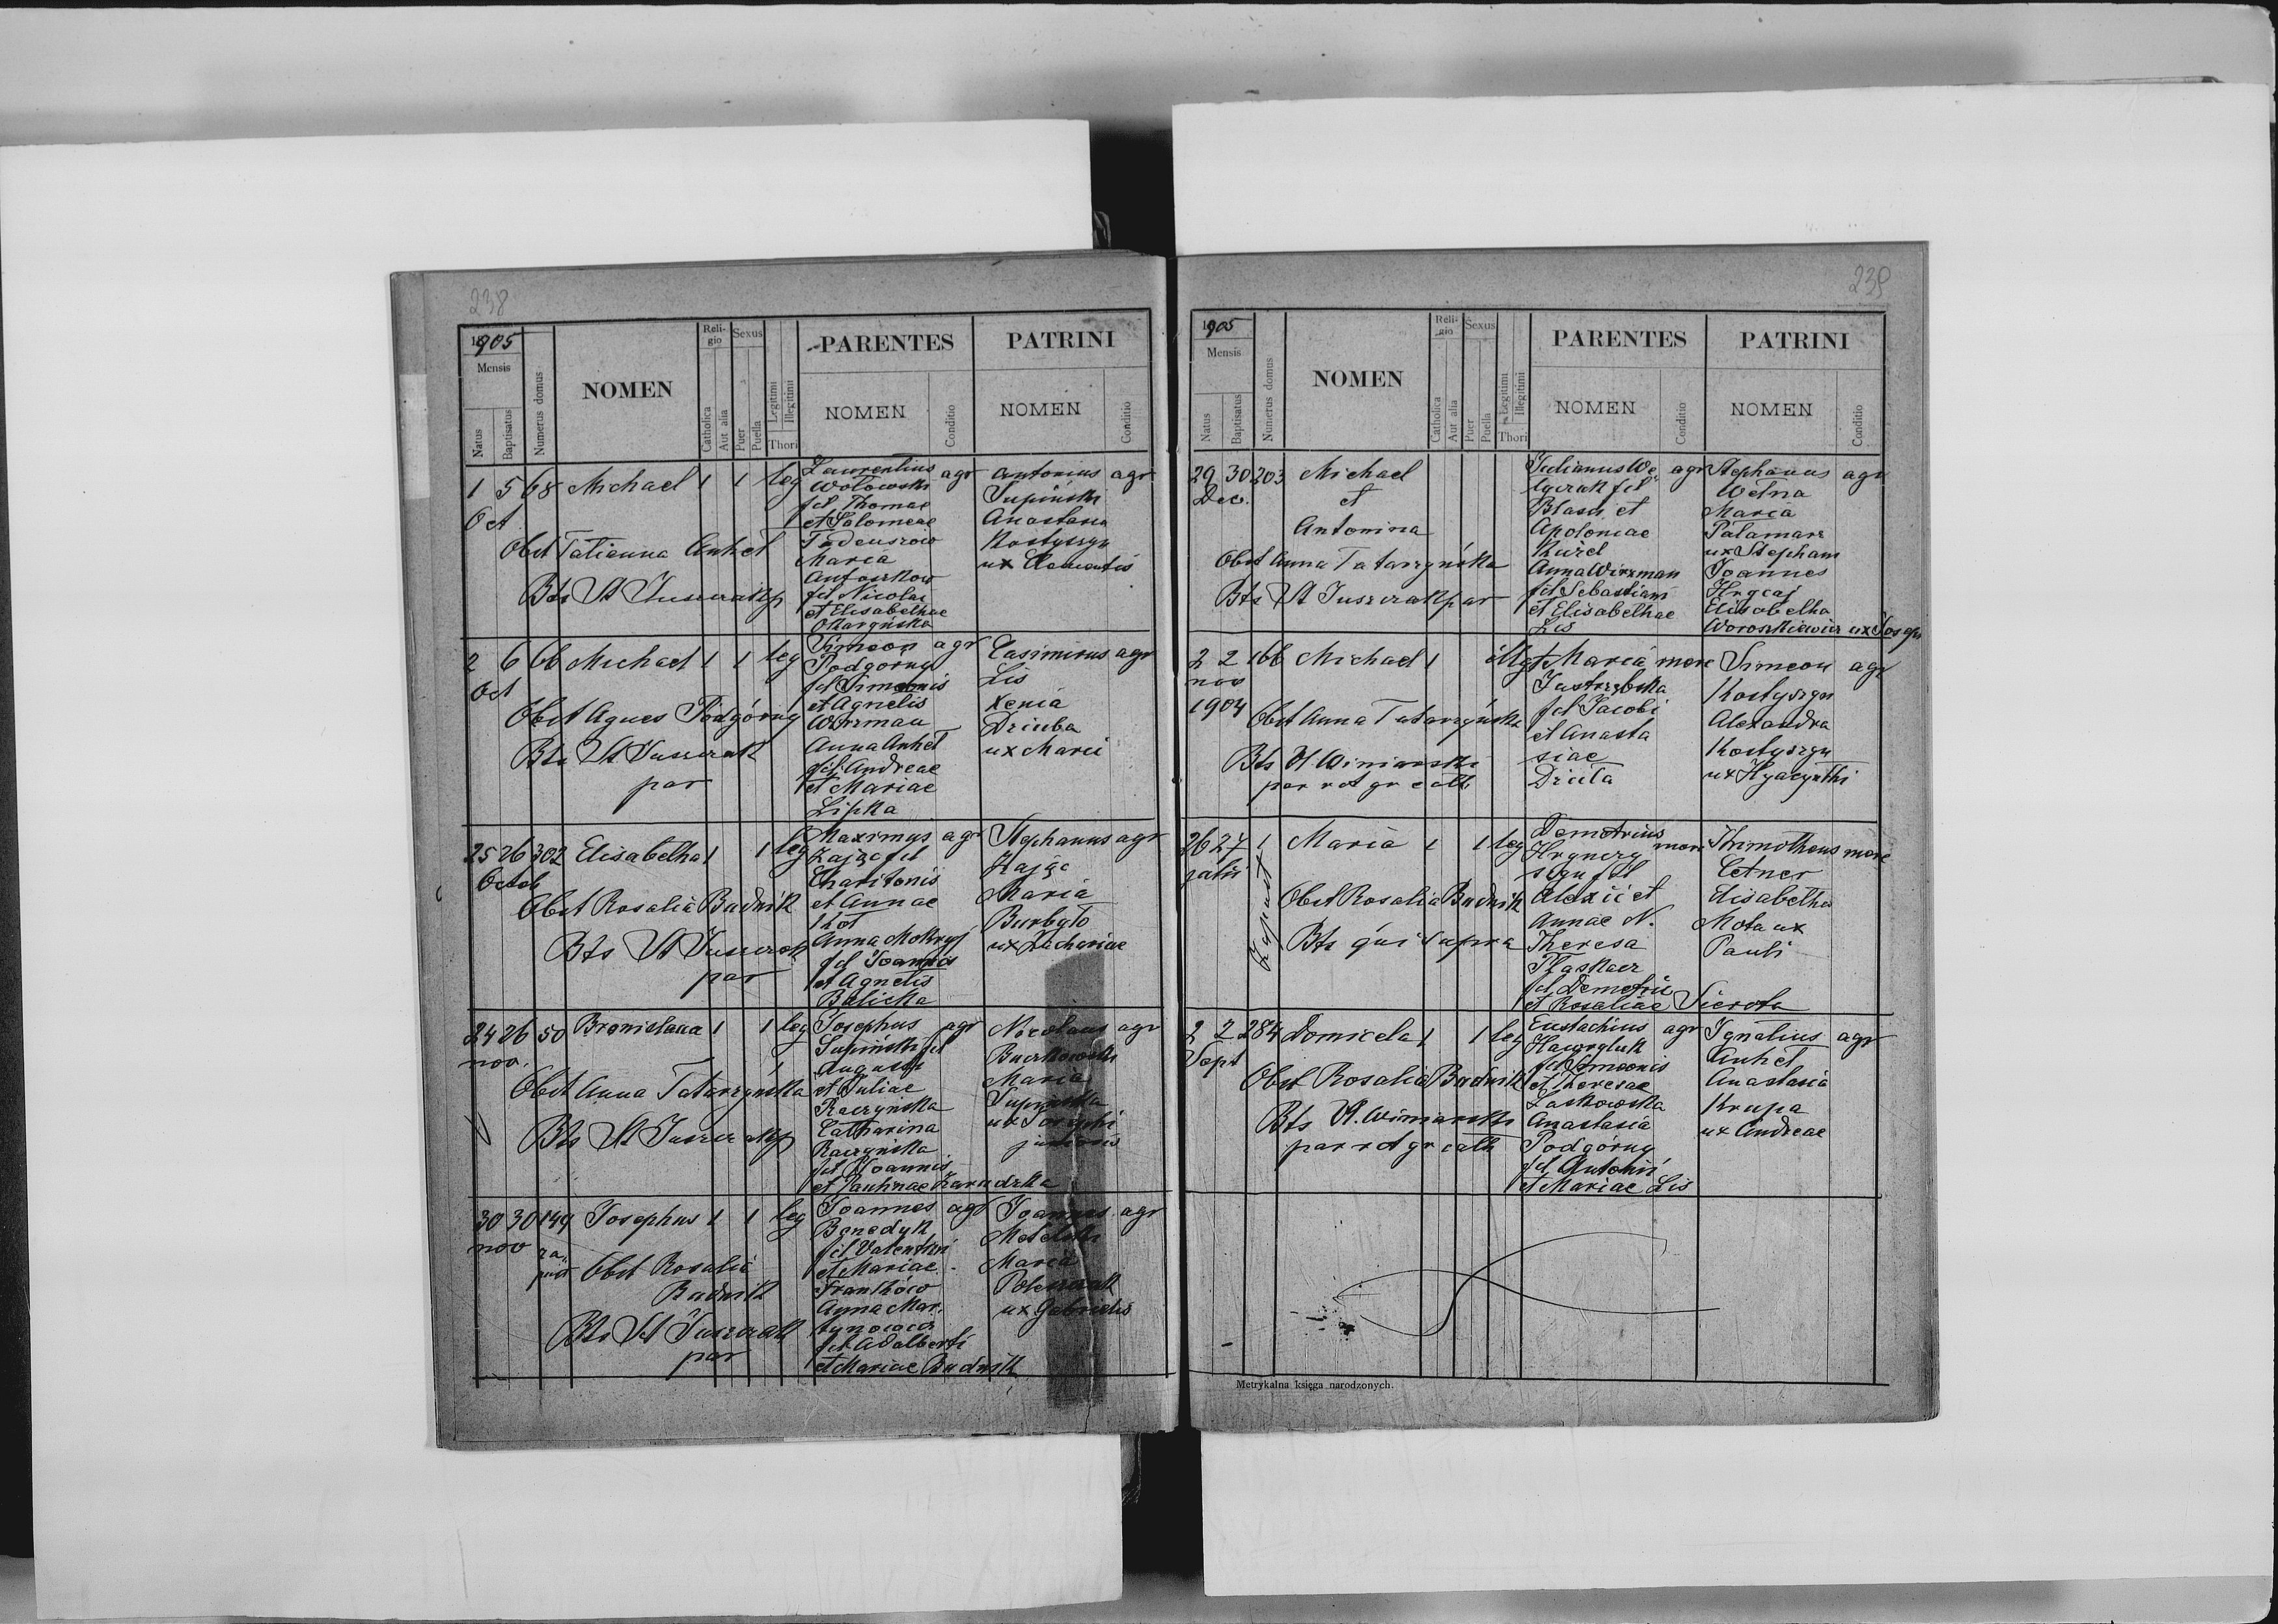 238
1905
Mensis
Natus
Baptisatus
Numerus domus
NOMEN
Reli-
gio
Catholica
Aut alia
Sexus
Puer
Puella
Legitimi
Illegitimi
Thori
PARENTES
NOMEN
Conditio
PATRINI
NOMEN
Conditio
1 5 68 Michael 1 1 leg
Oct
Obst Tatianna Anhel
Bts St Juszczak p
Laurentius agr
Wołowski
fil Thomae
et Salomeae
Tadeuszow
Maria
fil Nicolai
et Elisabethae
Okaryńska
Antonius agr
Supiński
Anastasia
Kostyszyn
ux Clementis
2 6 66 Michael 1 1 leg
Oct
Obst Agnes Podgórny
Bts St Juszczak
par
Simeon agr
Podgórny
fil Simeonis
et Agnetis
Wirzman
Anna Anhel
fil Andreae
et Mariae
Lipka
Casimirus agr
Lis
Xenia
Dziuba
ux Marci
25 26 302 Elisabetha 1 1 leg
Octob
Obst Rosalia Budnik
Bts St Juszczak
par
Maximus agr
Zając fil
Charitonis
et Annae
Kot
Anna Mokryj
fil Joannis
et Agnetis
Balicka
Stephanus agr
Zając
Maria
Burbyło
ux Zachariae
24 26 50 Bronislaua 1 1 leg
nov.
Obst Anna Tatarzyńska
Bts St Juszczak p
Josephus agr
Supiński fil
Augusti
et Juliae
Raczyńska
Catharina
Raczyńska
fil Joannis
et Paulinae Zarudzka
Nicolaus agr
Buczkowski
Maria
Supińska
ux Josephi
junioris
30 30 149 Josephus 1 1 leg
nov
Obst Rosalia
Budnik
Bts St Juszczak
par
Joannes agr
Benedyk
fil Valentini
et Mariae
Franków
Anna Mar.
tynowicz
fil Adalberti
et Mariae Budnik
Joannes agr
Maria
ux Gabrielis
239
1905
Mensis
Natus
Baptisatus
Numerus domus
NOMEN
Reli-
gio
Catholica
Aut alia
Sexus
Puer
Puella
Legitimi
Illegitimi
Thori
PARENTES
NOMEN
Conditio
PATRINI
NOMEN
Conditio
29 30 203 Michael
Dec.
et
Antonina
Obst Anna Tatarzyńska
Bts St Juszczak par
Julianus We agr
Blasii et
Apoloniae
Kuzel
Anna Wirzman
fil Sebastiani
et Elisabethae
Lis
Stephanus agr
Wełna
Maria
Palamarz
ux Stephani
Joannes
Hrycaj
Elisabetha
Woroszkiewicz ux Joseph
2 2 166 Michael 1 illgt
nov
1904
Obst Anna Tatarzyńska
Bts Vl Winiarski
par rit gr cath
Maria merc
Jastrzębska
fil Jacobi
et Anasta
siae
Dziuta
Simeon agr
Kostyszyn
Alexandra
Kostyszyn
ux Hyacynthi
26 27 1 Maria 1 1 leg
julii
Zapust
Obst Rosalia Budnik
Bts qui supra
Demetrius
Hrynczy merc
szyn fil
Alexii et
Annae N.
Theresa
fil Demetrii
et Rosaliae Sierota
Thimotheus merc
Cetner
Elisabetha
Mota ux
Pauli
2 2 284 Domicela 1 1 leg
Sept
Obst Rosalia Budnik
Bts Vl. Winiarski
par rit gr cath
Eustachius agr
Hawryluk
fil Simeonis
et Theresae
Laskowska
Anastasia
Podgórny
fil Antonii
et Mariae Lis
Ignatius agr
Anhel
Anastasia
Krupa
ux Andreae
Metrykalna księga narodzonych.